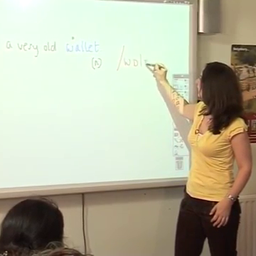 a very old wallet.
(n) /wɒl